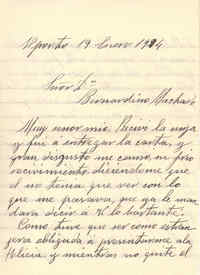 Oporto 19 Enero 1924
Señor Dn
Bernardino Machado
Muy señor mio. Recivi la suya
y fui a entregar la carta, y
gran disgusto me causo, su frio
recivimiento diciendome que
el no tenia que ver con lo
que me pasava, que ya le man
dara decir a V. lo bastante.
Como tuve que ser como estran
gera obligada a presentarme a la
Policia y mientras no quite el